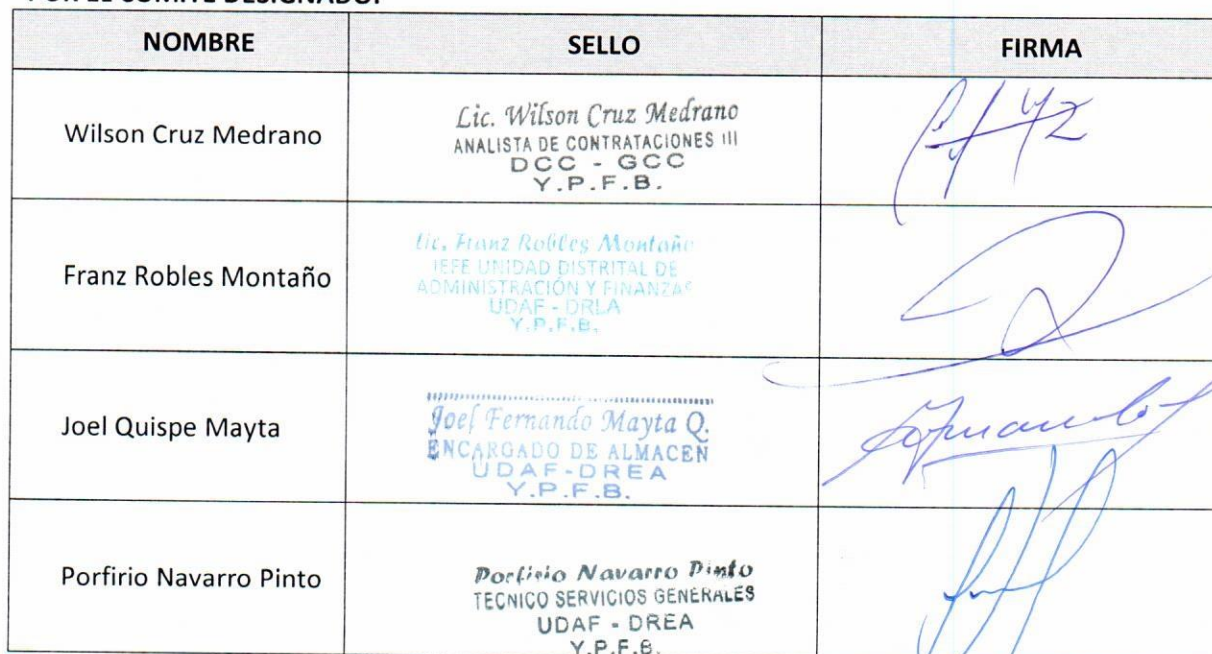 POR EL COMITÉ DESIGNADO:
NOMBRE SELLO FIRMA
Wilson Cruz Medrano
Lic. Wilson Cruz Medrano
ANALISTA DE CONTRATACIONES III
DCC - GCC
Y.P.F.B.
Franz Robles Montaño
Lic. Franz Robles Montaño
JEFE UNIDAD DISTRITAL DE
ADMINISTRACIÓN Y FINANZAS
UDAF - DRLA
Y.P.F.B.
Joel Quispe Mayta
Joel Fernando Mayta Q.
ENCARGADO DE ALMACEN
UDAF-DREA
Y.P.F.B.
Porfirio Navarro Pinto
Porfirio Navarro Pinto
TECNICO SERVICIOS GENERALES
UDAF - DREA
Y.P.F.B.